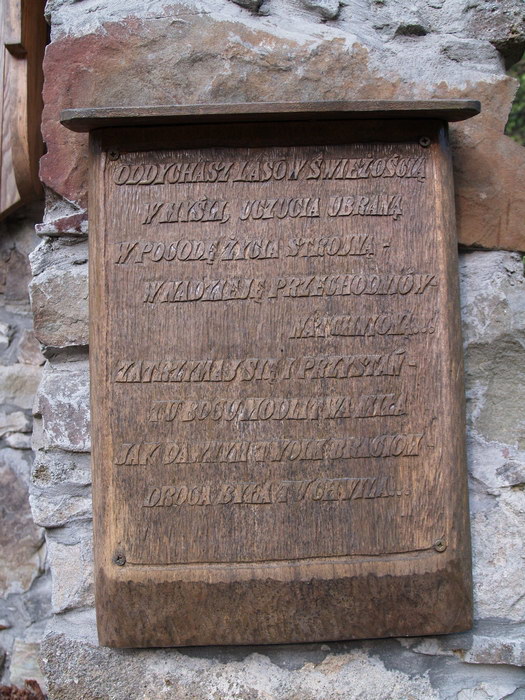 ODDYCHASZ LASÓW ŚWIEŻOŚCIĄ
W MYŚLI, UCZUCIA UBRANĄ
W POGODĘ ŻYCIA STROJNĄ -
W NADZIEJĘ PRZECHODNIÓW
ZATRZYMAJ SIĘ I PRZYSTAŃ -
TU BOGU MODLITWA MIŁA
JAK DAWNIEJ TWOIM BRACIOM -
DROGA BYŁA TU CHWILA...